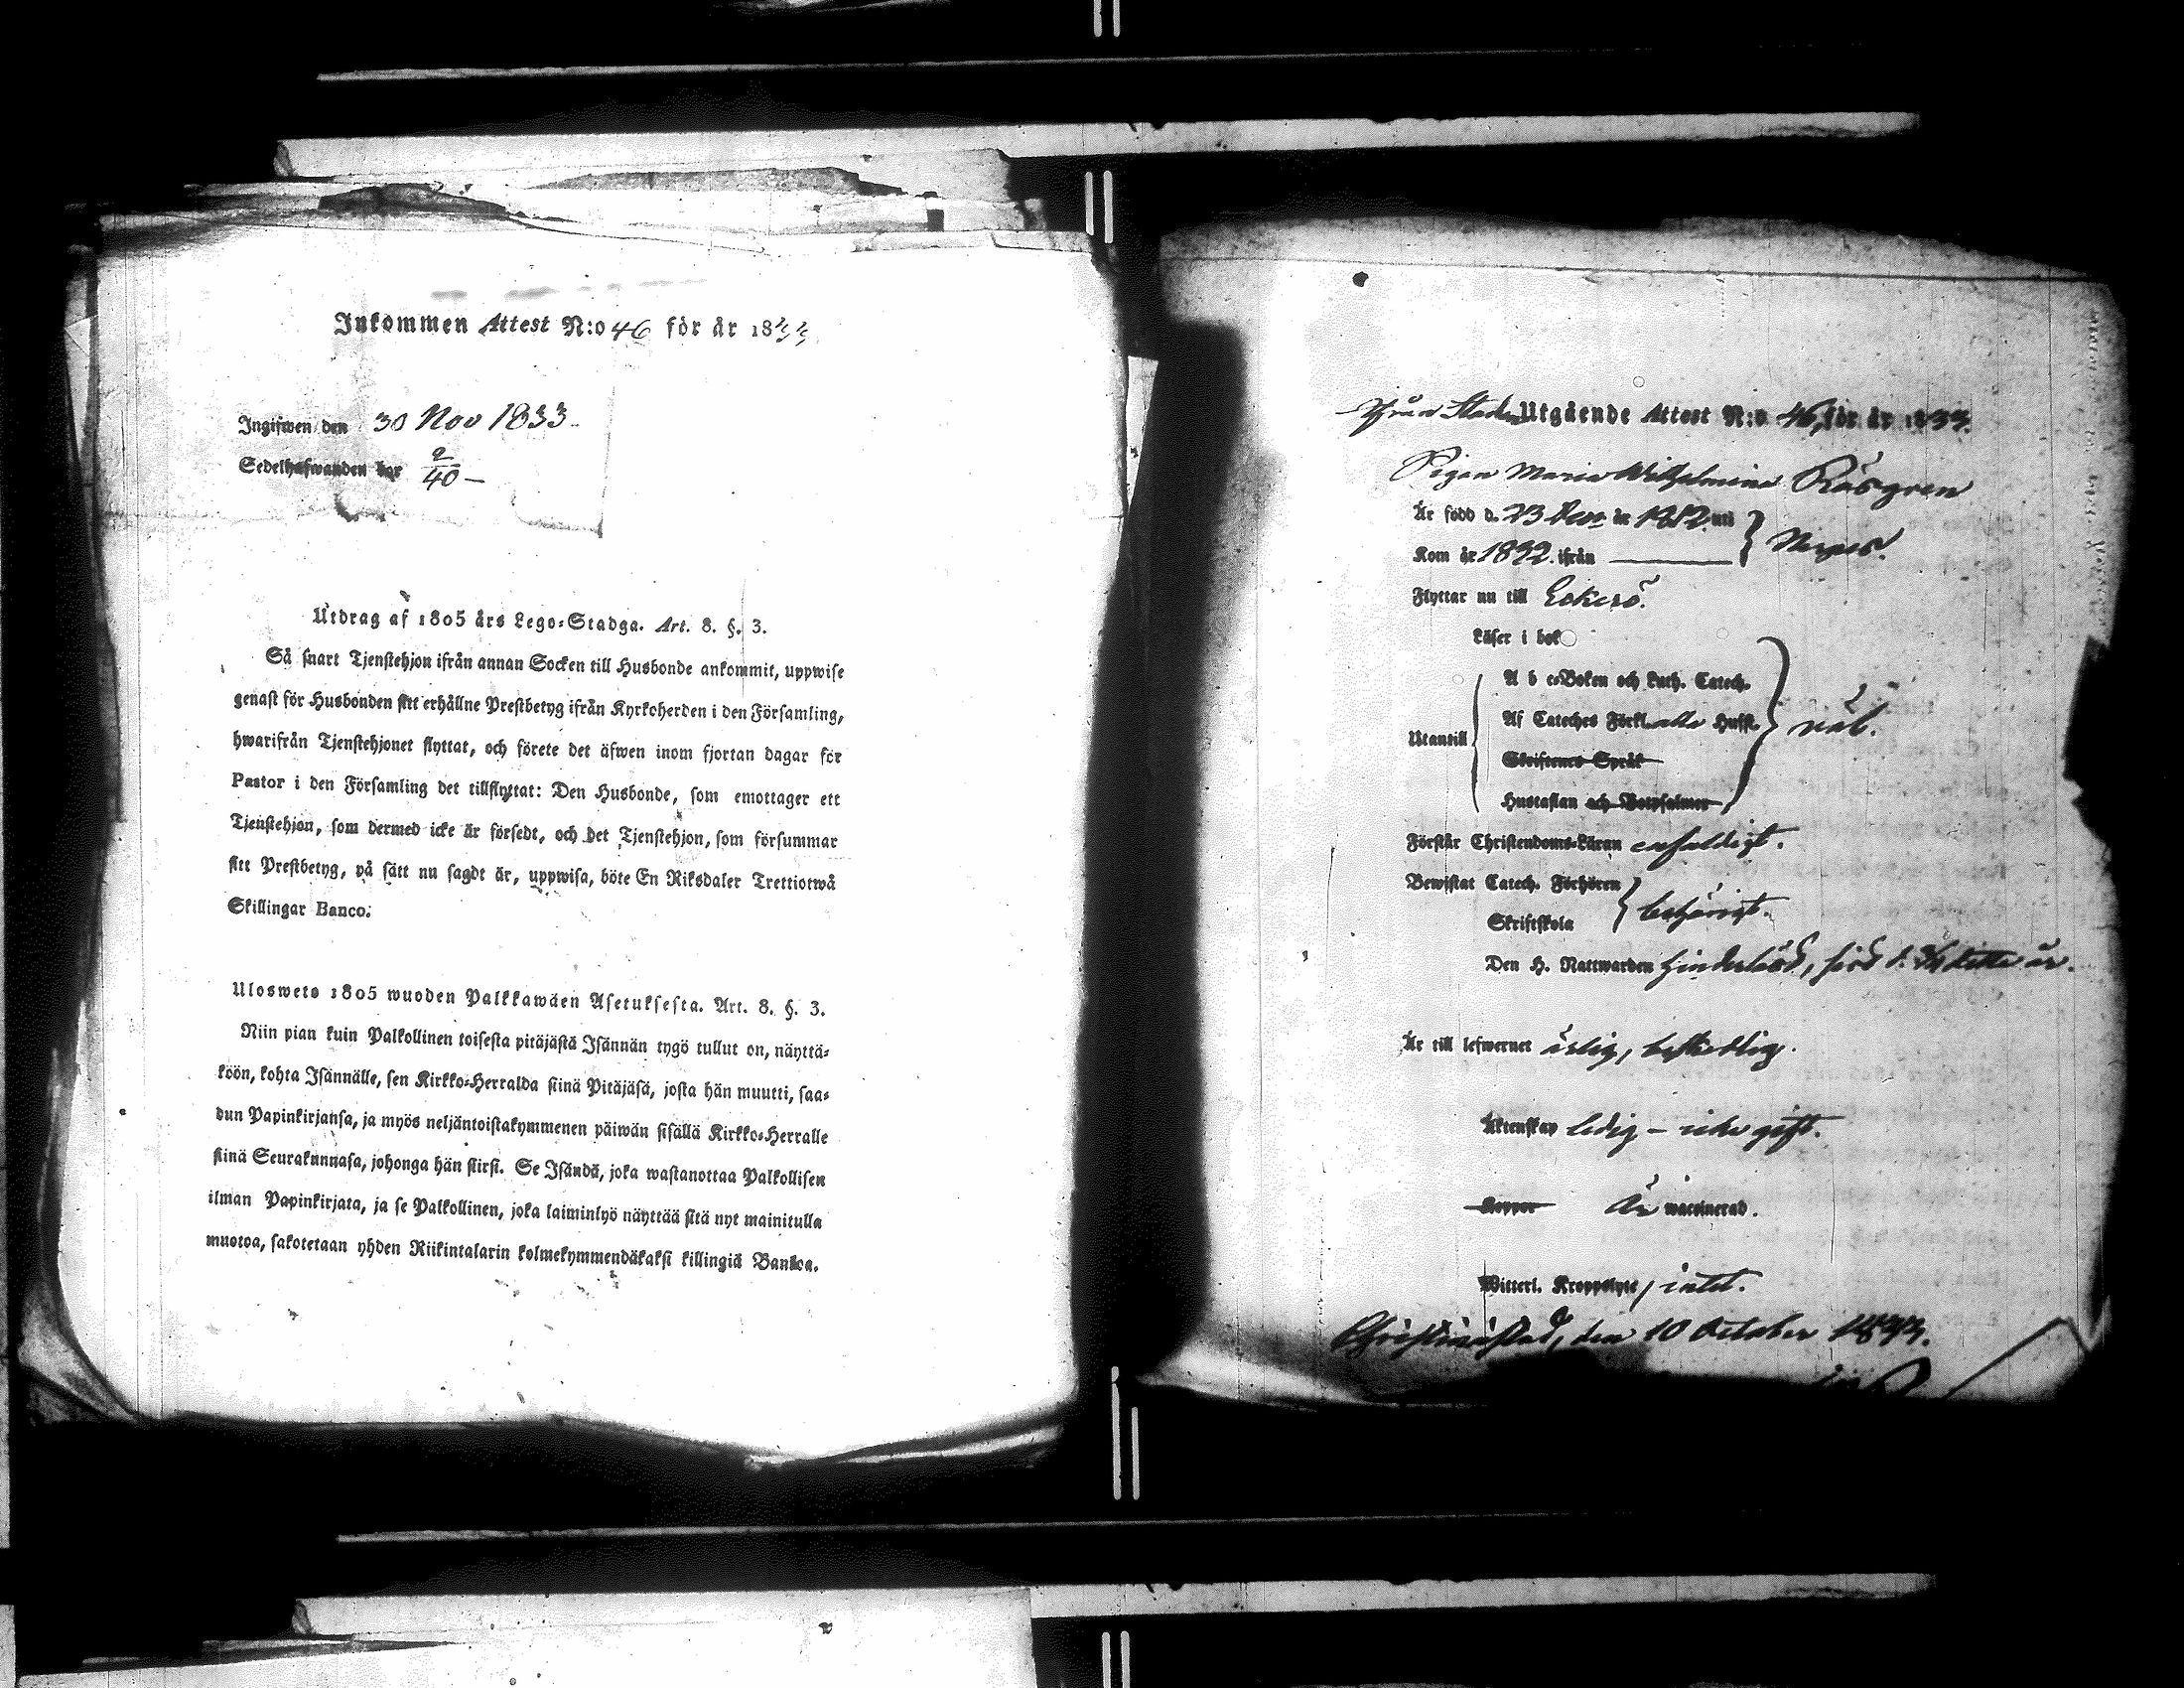 Inkommen Attest N:o 46 för år 1833
Ingifwen den 30 Nov 1833
Sedelhafwanden bor 2/40 –
Utdrag af 1805 års Lego-Stadga. Art. 8. §. 3.
Så snart Tjenstehjon ifrån annan Socken till Husbonde ankommit, uppwise
genast för Husbonden sitt erhållne Prestbetyg ifrån Kyrkoherden i den Församling,
hwarifrån Tjenstehjonet flyttat, och förete det äfwen inom fjortan dagar för
Pastor i den Församling det tillflyttat: Den Husbonde, som emottager ett
Tjenstehjon, som dermed icke är försedt, och det Tjenstehjon, som försummar
sitt Prestbetyg, på sätt nu sagdt är, uppwisa, böte En Riksdaler Trettiotwå
Skillingar Banco.
Ulosweto 1805 wuoden Palkkawäen Asetuksesta. Art. 8. §. 3.
Niin pian kuin Palkollinen toisesta pitäjästä Isännän tygö tullut on, näyttä-
köön, kohta Isännälle, sen Kirkko-Herralda siinä Pitäjäsä, josta hän muutti, saa-
dun Papinkirjansa, ja myös neljäntoistakymmenen päiwän sisällä Kirkko-Herralle
siinä Seurakunnasa, johonga hän siirsi. Se Isändä, joka wastanottaa Palkollisen
ilman Papinkirjata, ja se Palkollinen, joka laiminlyö näyttää sitä nyt mainitulla
muotoa, sakotetaan yhden Riikintalarin kolmekymmendäkaksi killingiä Bankoa.
Från Staden Utgående Attest N:o 46, för år 1833.
Pigan Maria Wilhelmina Råsgren
Är född d. 23 Dec är 1812 uti
Kom år 1832. ifrån } Nerpes.
Flyttar nu till Eckerö.
Läser i bok
A b c-Boken och Luth. Catech.
Af Cateches Förkl. alla Hufst.
Utantill } väl.
Skriftenes Språk
Hustaflan och Botpsalmer
Förstår Christendoms-Läran enfaldigt.
Bewistat Catech. Förhören
Skriftskola } behörigt.
Den H. Nattwarden hinderlöst, sist d. detta år.
Är till lefwernet ärlig, beskedlig.
Äktenskap ledig – icke gift.
Koppor Är waccinerad.
Witterl. Kroppslyte, intet.
Christinestad, den 10 October 1833.